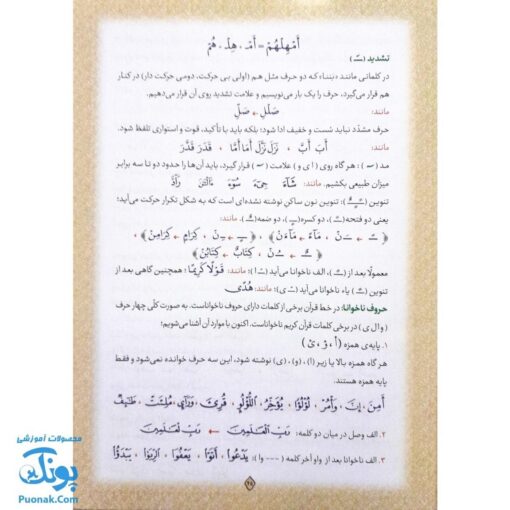 أَمْهِلْهُمْ = أَمْـ ـهِلْـ ـهُمْ
تشدید (ـّـ)
در کلماتی مانند «بننا» که دو حرف مثل هم (اولی بی حرکت، دومی حرکت دار) در کنار
هم قرار می‌گیرد، حرف را یک بار می‌نویسیم و علامت تشدید روی آن قرار می‌دهیم.
مانند: صَلْلِ ← صَلِّ
حرف مشدّد نباید سُست و خفیف ادا شود؛ بلکه باید با تأکید، قوت و استواری تلفظ شود.
مانند: أَبَ أَبَّ ، نَزَلَ نَزَّلَ أَمَا أَمَّا ، قَدَرَ قَدَّرَ
مد (ـٓـ) : هر گاه روی (ا ی و) علامت (ـٓـ) قرار گیرد، باید آن‌ها را حدود دو تا سه برابر
میزان طبیعی بکشیم. مانند: شَآءَ جِیٓءَ سُوٓءَ
تنوین (ـًـٍـٌ): تنوین نون ساکنِ نوشته نشده‌ای است که به شکل تکرار حرکت می‌آید؛
یعنی دو فتحه(ـً)، دو کسره(ـٍ)، دو ضمه(ـٌ). مانند:
﴿ ـً ← ـَ نْ ، مَآءً ← مَآءَنْ ﴾ ، ﴿ ـٍ ← ـِ نْ ، کِرَامٍ ← کِرَامِنْ ﴾
﴿ ـٌ ← ـُ نْ ، کِتَابٌ ← کِتَابُنْ ﴾
معمولًا بعد از (ـً)، الف ناخوانا می‌آید (ـً ا)؛ مانند: قَوْلًا کَرِیمًا ؛ همچنین گاهی بعد از
تنوین (ـً) یاء ناخوانا می‌آید (ـً ی)؛ مانند: هُدًی
حروف ناخوانا: در خط قرآن برخی از کلمات دارای حروف ناخواناست. به صورت کلّی چهار حرف
(و ا ل ی) در برخی کلمات قرآن کریم ناخواناست. اکنون با موارد آن آشنا می‌شویم:
۱. پایه‌ی همزه (أ ، ؤ ، ئ)
هر گاه همزه بالا یا زیر (ا)، (و)، (ی) نوشته شود، این سه حرف خوانده نمی‌شود و فقط
پایه همزه هستند.
أَمِنَ، إِنَّ، وَأْمُرْ، لُؤْلُؤًا، یُؤَخِّرُ، اللُّؤْلُؤِ، قُرِئَ،
۲. الف وصل در میان دو کلمه: رَبِّ الْعَالَمِینَ ← رَبِّ لْعَالَمِینَ
۳. الف ناخوانا بعد از واو آخر کلمه (--- وا): یَدْعُوا، أَتَوْا، یَعْفُوَا، الرِّبَوٰا، یَبْدَؤُا
محصولات آموزشی
پونک
Puonak.Com